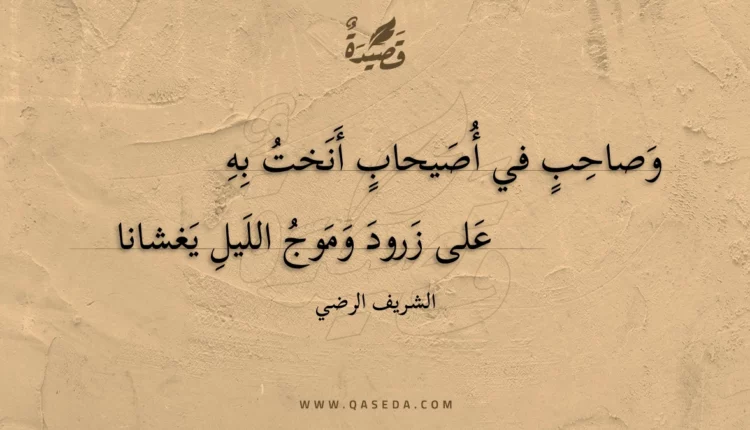 قَصِيدَةٌ
وَصاحِبٍ في أُصَيحابٍ أَنَختُ بِهِ
عَلى زَرودَ وَمَوجُ اللَيلِ يَغشانا
الشريف الرضي
WWW.QASEDA.COM